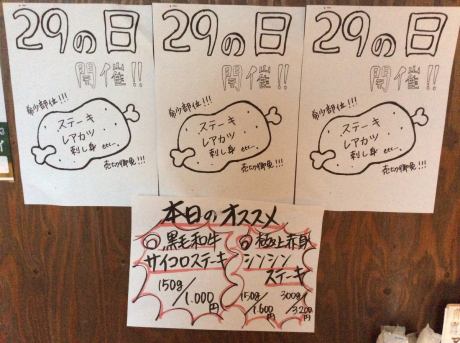 29の日
開催!!
希少部位!!!
ステーキ
レアカツ
刺し身 etc...
売切御免!!!
29の日
開催!!
希少部位!!!
ステーキ
レアカツ
刺し身 etc...
売切御免!!!
29の日
開催!!
希少部位!!!
ステーキ
レアカツ
刺し身 etc...
売切御免!!!
本日のオススメ
◎黒毛和牛
サイコロステーキ
150g/1.000円
◎極上赤身
シンシン
ステーキ
150g/1.600円
300g/3.200円